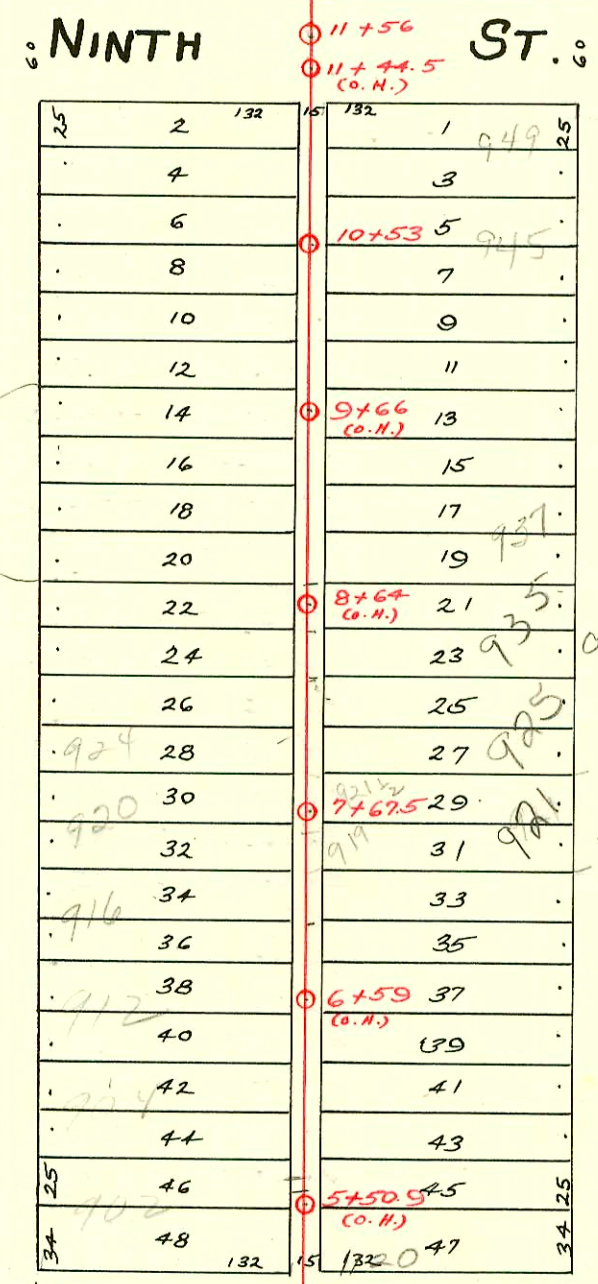 60 NINTH ST. 60
11+56
11+44.5
(O.H.)
25 2 132 15 132 1 949 25
4 3
6 10+53 5 945
8 7
10 9
12 11
14 9+66 13
(O.H.)
16 15
18 17 937
20 19
22 8+64 21 935
(O.H.)
24 23
26 25 925
924 28 27
921½
920 30 7+67.5 29 921
32 919 31
916 34 33
36 35
912 38 6+59 37
(O.H.)
40 39
42 41
44 43
25 902 46 5+50.9 45 25
(O.H.)
34 48 132 15 132 47 34